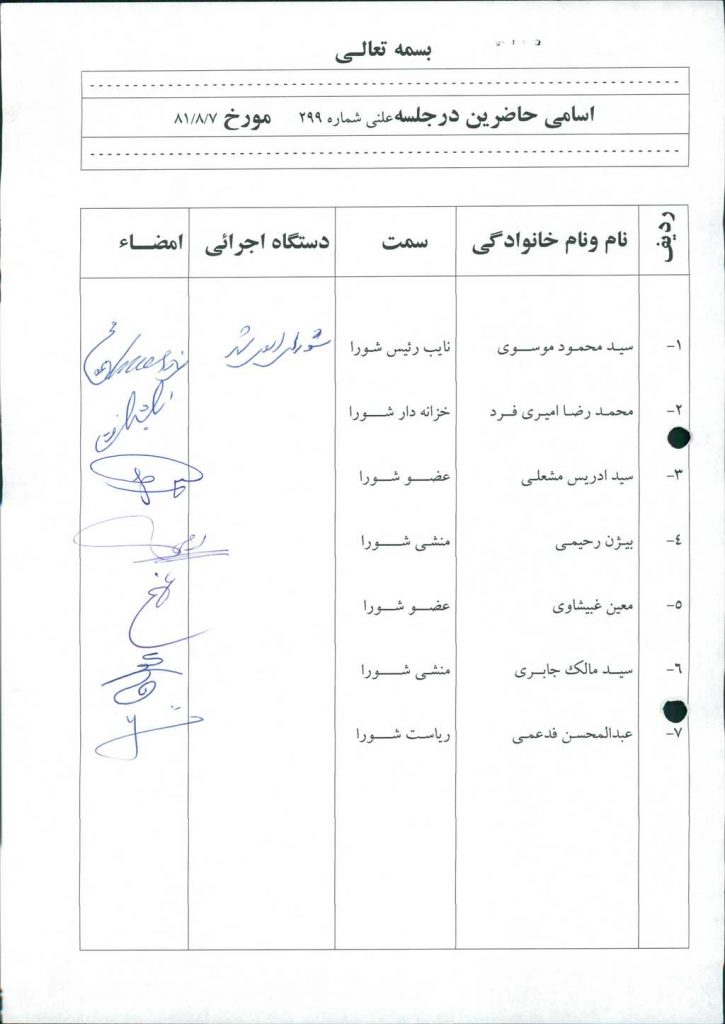 بسمه تعالـی
اسامی حاضرین درجلسه علنی شماره ۲۹۹ مورخ ۸۱/۸/۷
ردیف نام ونام خانوادگی سمت دستگاه اجرائی امضـــاء
۱- سید محمـود موســوی نایب رئیس شـورا شورای اسلامی شهر
۲- محمـد رضـا امیـری فـرد خزانه دار شــــورا
۳- سید ادریس مشعلـی عضـــو شــــورا
٤- بیـژن رحیمـی منشـی شــــورا
۵- معین غبیشاوی عضـــو شــــورا
٦- سیــد مالـک جابـری منشـی شــــورا
۷- عبدالمحسـن فدعمـی ریاسـت شــــورا